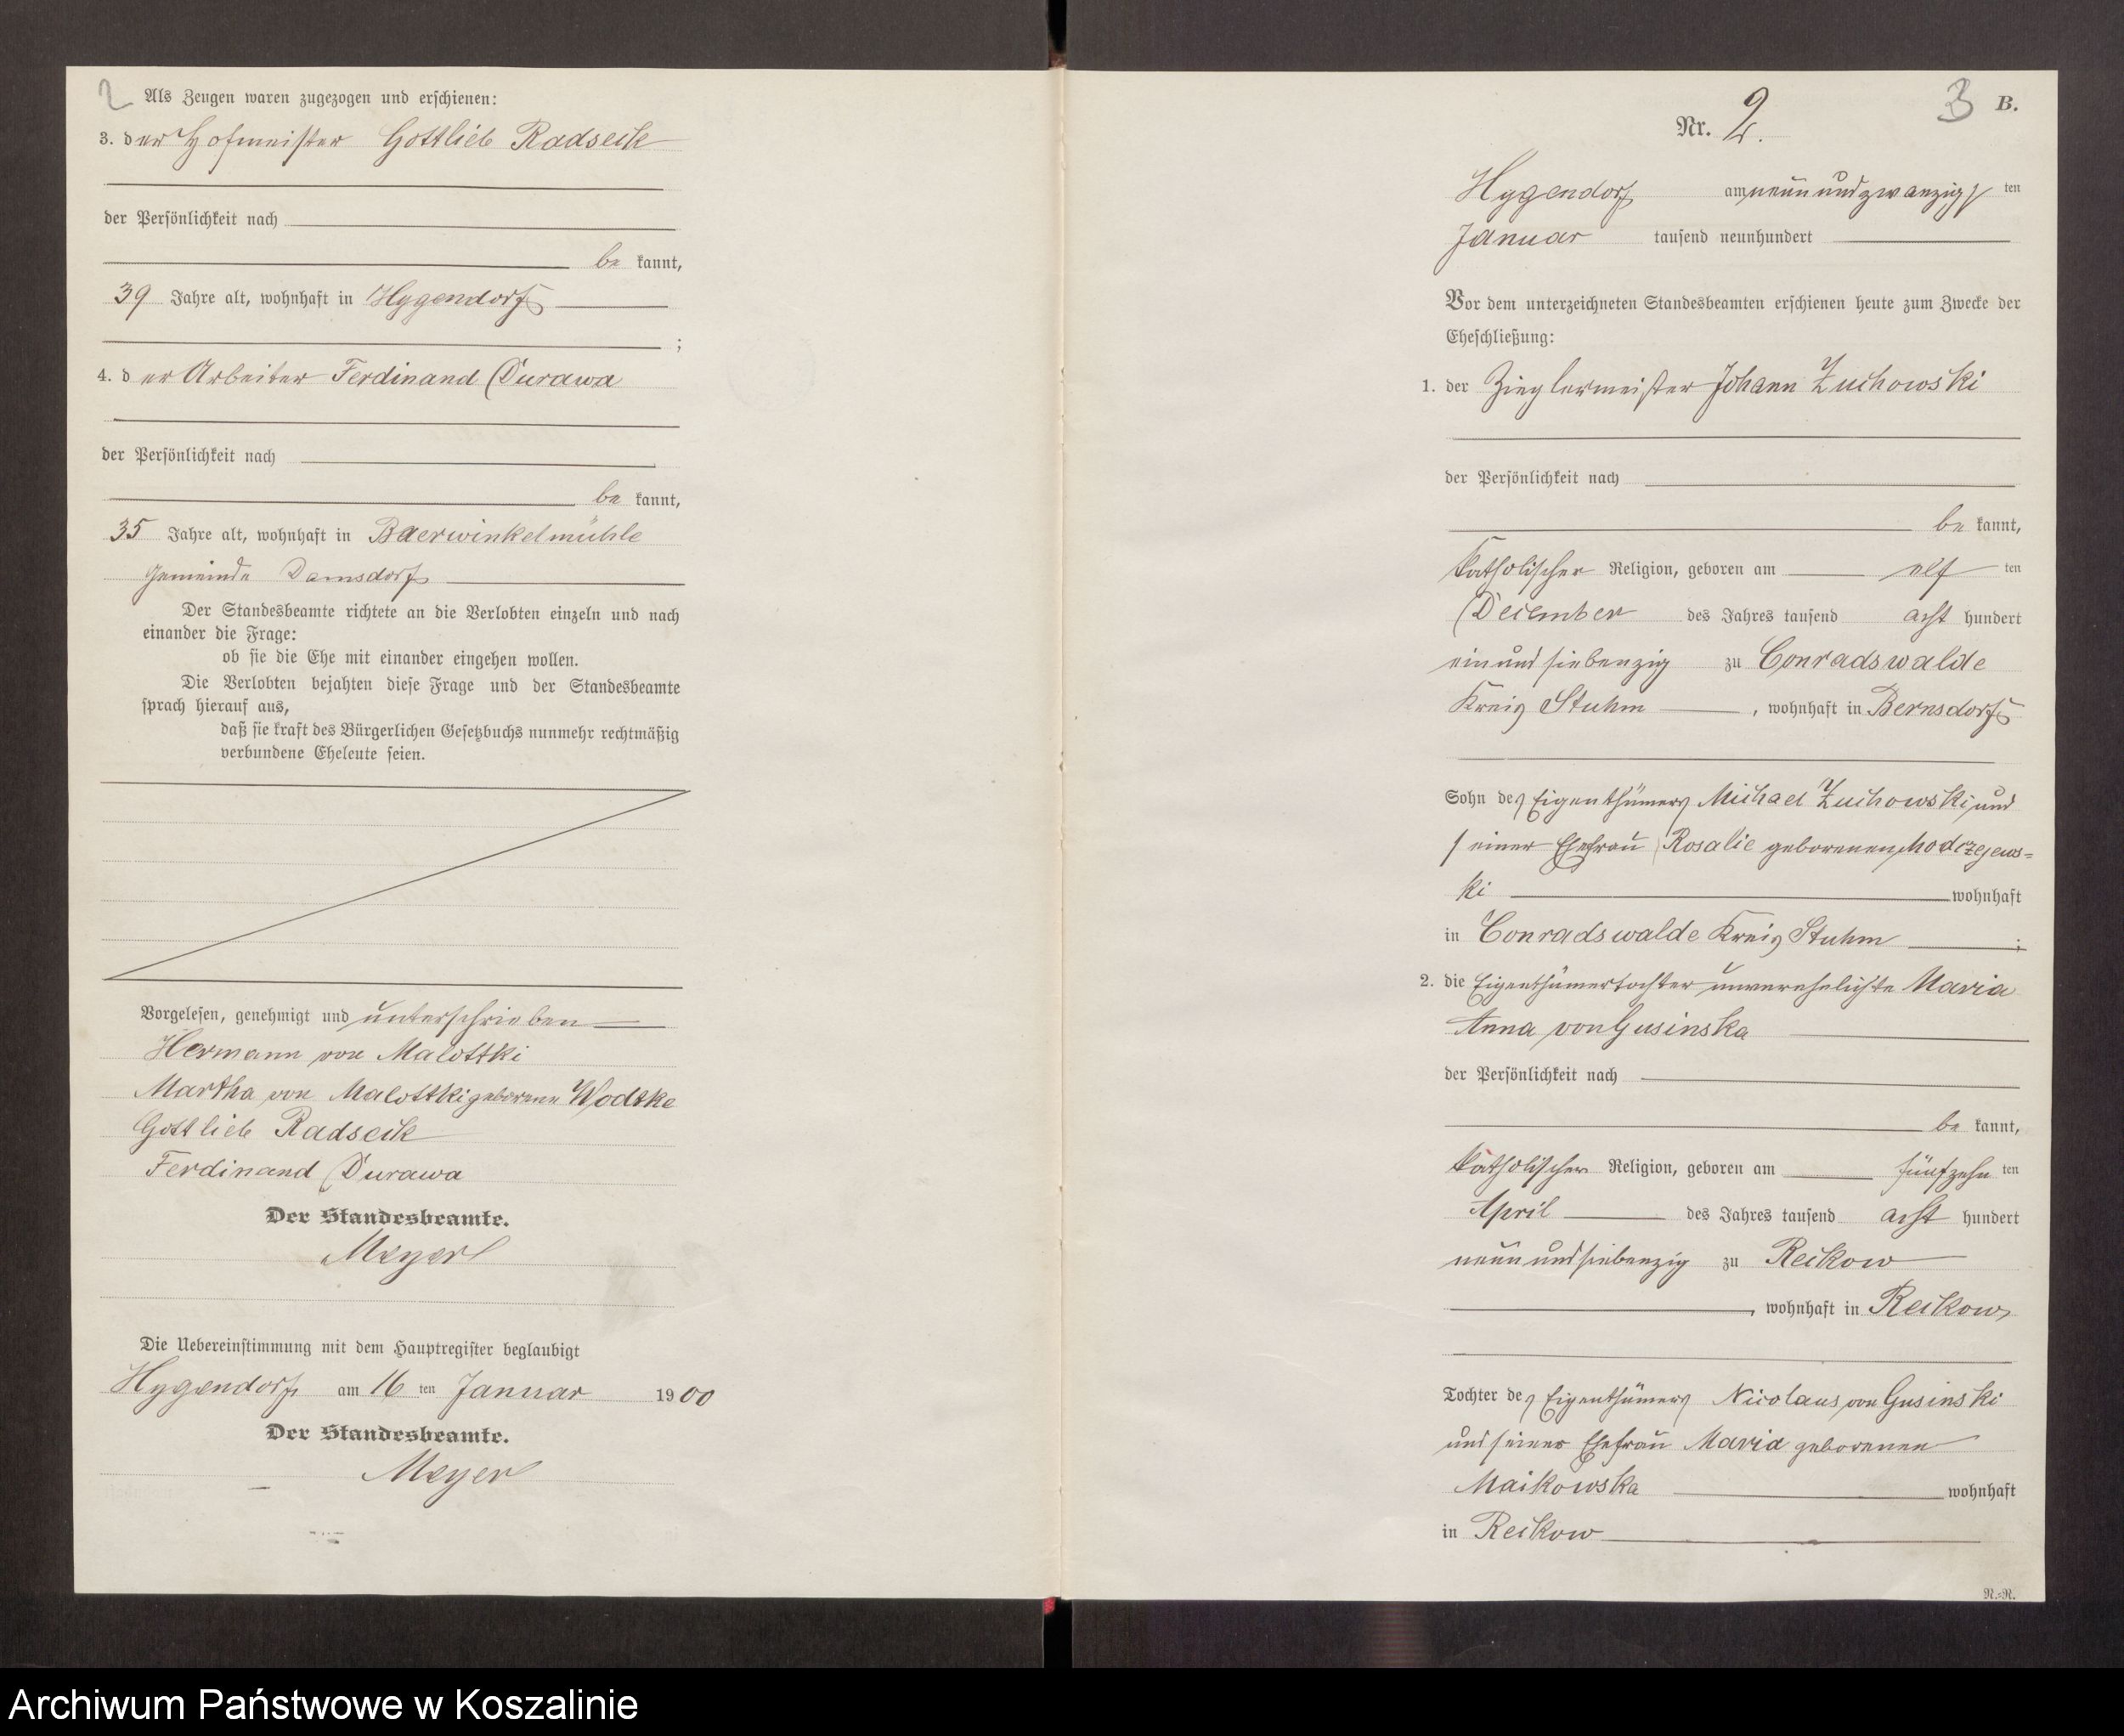 2
Als Zeugen waren zugezogen und erschienen:
3. der Hofmeister Gottlieb Radseck
der Persönlichkeit nach
be kannt,
39 Jahre alt, wohnhaft in Hygendorf
;
4. der Arbeiter Ferdinand Durawa
der Persönlichkeit nach
be kannt,
35 Jahre alt, wohnhaft in Baerwinkelmühle
Gemeinde Damsdorf
Der Standesbeamte richtete an die Verlobten einzeln und nach
einander die Frage:
ob sie die Ehe mit einander eingehen wollen.
Die Verlobten bejahten diese Frage und der Standesbeamte
sprach hierauf aus,
daß sie kraft des Bürgerlichen Gesetzbuchs nunmehr rechtmäßig
verbundene Eheleute seien.
Vorgelesen, genehmigt und unterschrieben
Hermann von Malottki
Martha von Malottki geborene Wodtke
Gottlieb Radseck
Ferdinand Durawa
Der Standesbeamte.
Meyer
Die Uebereinstimmung mit dem Hauptregister beglaubigt
Hygendorf am 16 ten Januar 1900
Der Standesbeamte.
Meyer
3 B.
Nr. 2.
Hygendorf am neun und zwanzigs ten
Januar tausend neunhundert
Vor dem unterzeichneten Standesbeamten erschienen heute zum Zwecke der
Eheschließung:
1. der Zieglermeister Johann Zuchowski
der Persönlichkeit nach
be kannt,
katholischer Religion, geboren am elf ten
December des Jahres tausend acht hundert
ein und siebenzig zu Conradswalde
Kreis Stuhm, wohnhaft in Bernsdorf
Sohn des Eigenthümers Michael Zuchowski und
seiner Ehefrau Rosalie geborenen Modczejews=
ki wohnhaft
in Conradswalde Kreis Stuhm ;
2. die Eigenthümertochter unverehelichte Maria
Anna von Gusinska
der Persönlichkeit nach
be kannt,
katholischer Religion, geboren am fünfzehn ten
April des Jahres tausend acht hundert
neun und siebenzig zu Reckow
, wohnhaft in Reckow,
Tochter des Eigenthümers Nicolaus von Gusinski
und seiner Ehefrau Maria geborenen
Maikowska wohnhaft
in Reckow
N.-N.
Archiwum Państwowe w Koszalinie